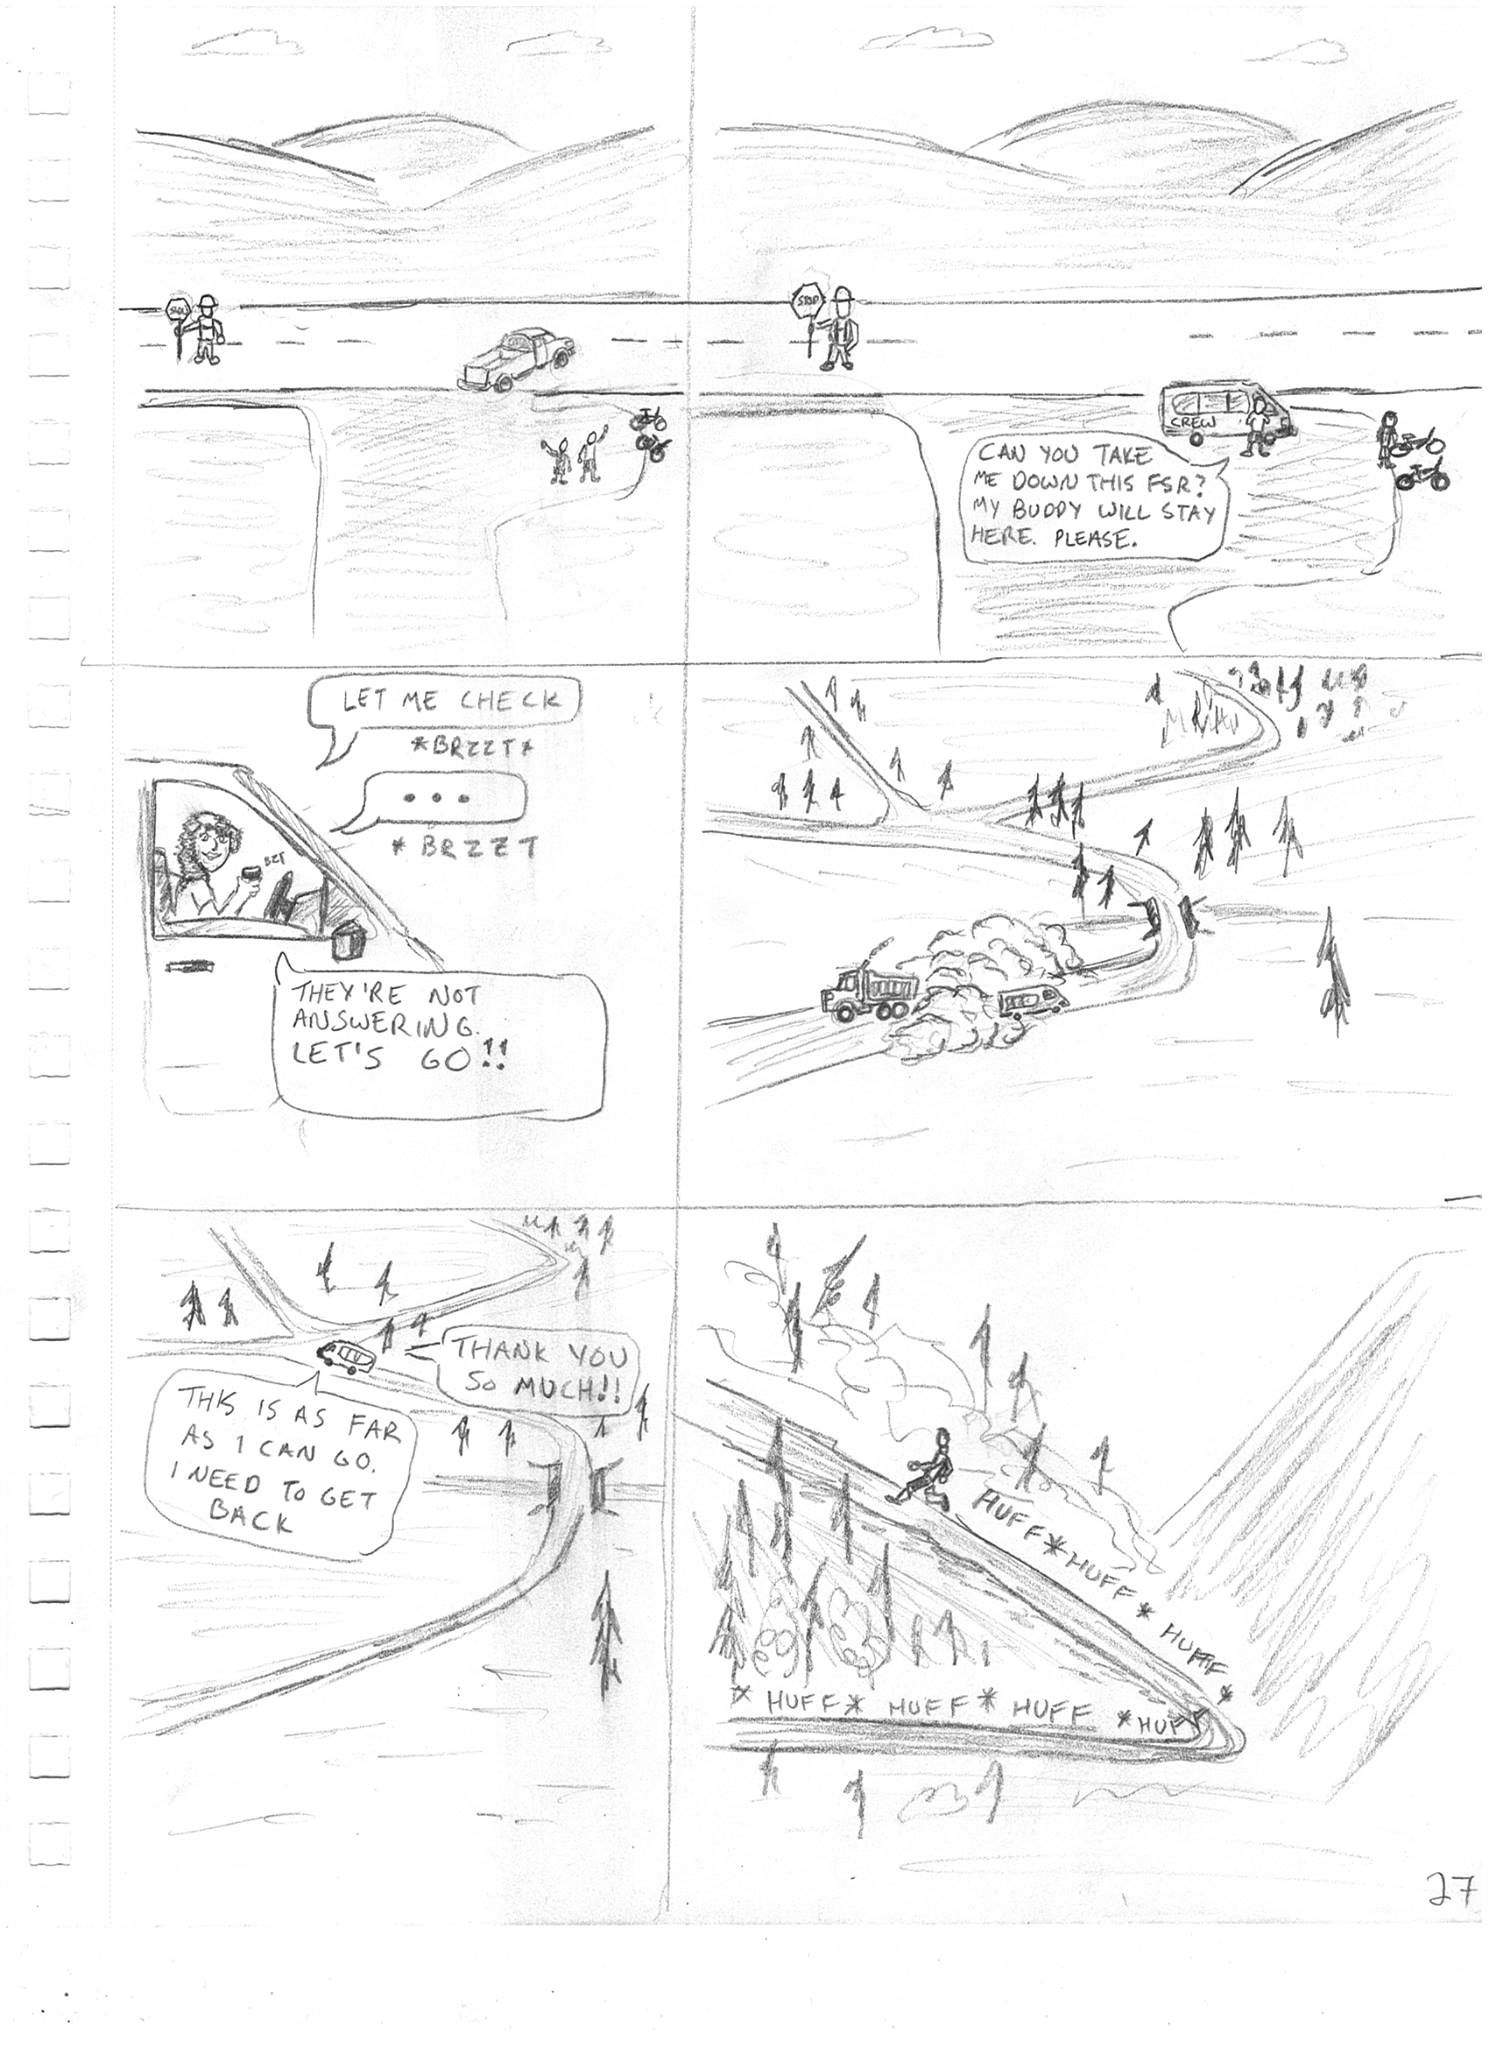 STOP
CREW
CAN YOU TAKE
ME DOWN THIS FSR?
MY BUDDY WILL STAY
HERE. PLEASE.
LET ME CHECK
*BRZZT*
...
* BRZZT
BZT
THEY'RE NOT
ANSWERING.
LET'S GO!!
THANK YOU
SO MUCH!!
THIS IS AS FAR
AS I CAN GO.
I NEED TO GET
BACK
HUFF*HUFF* HUFF *
* HUFF* HUFF* HUFF *HUFF
27